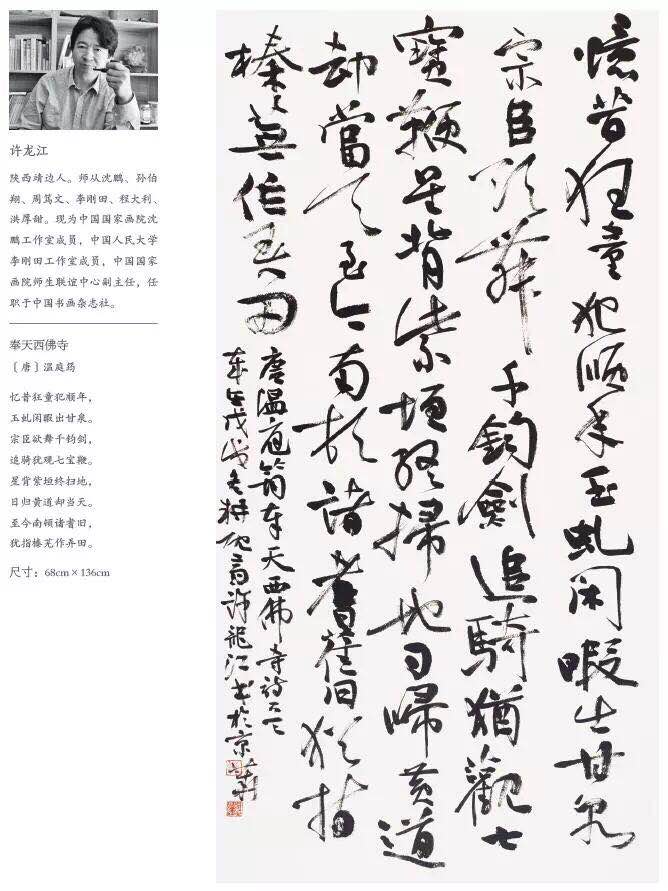 许龙江
陕西靖边人。师从沈鹏、孙伯
翔、周笃文、李刚田、程大利、
洪厚甜。现为中国国家画院沈
鹏工作室成员，中国人民大学
李刚田工作室成员，中国国家
画院师生联谊中心副主任，任
职于中国书画杂志社。
奉天西佛寺
〔唐〕温庭筠
忆昔狂童犯顺年，
玉虬闲暇出甘泉。
宗臣欲舞千钧剑，
追骑犹观七宝鞭。
星背紫垣终扫地，
日归黄道却当天。
至今南顿诸耆旧，
犹指榛芜作弄田。
尺寸：68cm×136cm
憶昔狂童犯順年玉虬閑暇出甘泉
宗臣欲舞千鈞劍追騎猶觀七
寶鞭星背紫垣終掃地日歸黃道
却當天至今南頓諸耆舊猶指
榛蕪作弄田
唐溫庭筠奉天西佛寺詩
戊戌許龍江書於京華